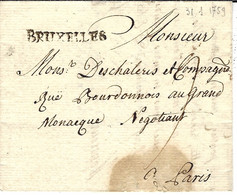 31. 1. 1759
BRUXELLES
Monsieur
Mons.r Deschaleris et Compagnie
Rüe Bourdonnois au Grand
Monarque Negotiant
à Paris